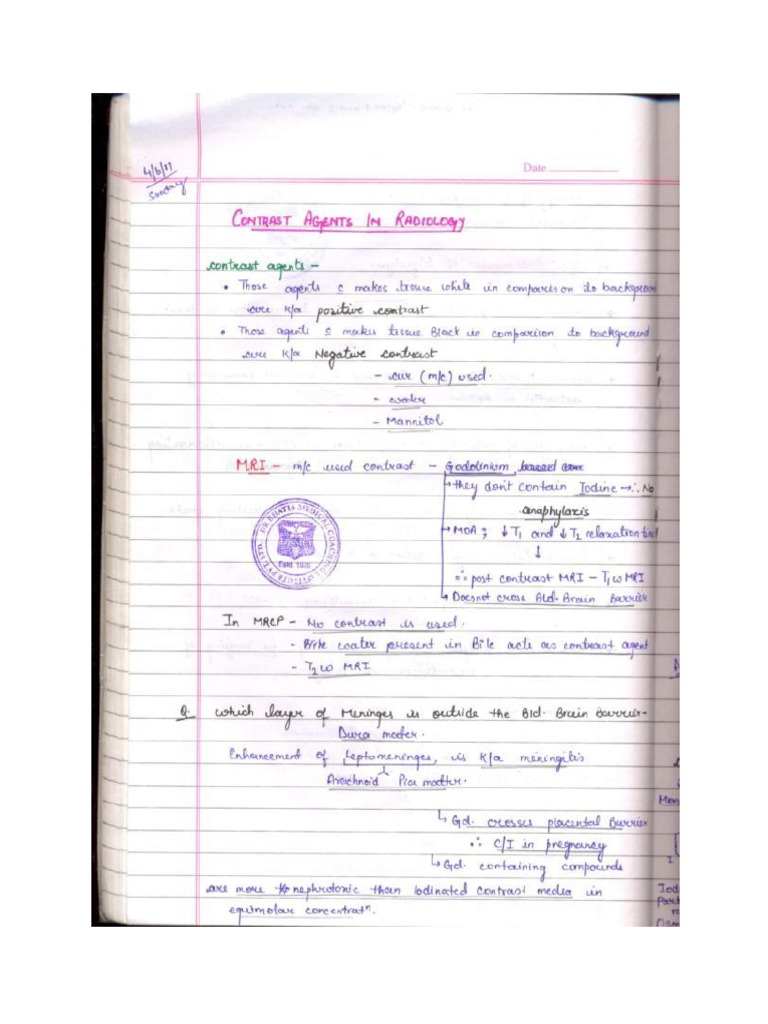 Date
4/6/17
Sunday
CONTRAST AGENTS IN RADIOLOGY
contrast agents -
• Those agents c makes tissue white in comparison to background
are k/a positive contrast
• Those agents c makes tissue Black in comparison to background
are k/a Negative contrast
- air (m/c) used.
- water
- Mannitol
MRI - m/c used contrast - Gadolinium based
they don't contain Iodine → ∴ No
anaphylaxis
MOA ; ↓ T1 and ↓ T2 relaxation
↓
∴ post contrast MRI - T1 w MRI
Doesnot cross Bld. Brain Barrier
DR BHATIA MEDICAL COACHING INSTITUTE PVT. LTD.
In MRCP - No contrast is used.
- water present in Bile acts as contrast agent
- T2 w MRI
Q. which layer of Meninges is outside the Bld. Brain Barrier-
Dura matter.
Enhancement of Leptomeninges, is k/a meningitis
Arachnoid Pia matter.
Gd. crosses placental Barrier
∴ C/I in pregnancy
Gd. containing compounds
are more nephrotoxic than Iodinated contrast media in
equimolar concentratn.